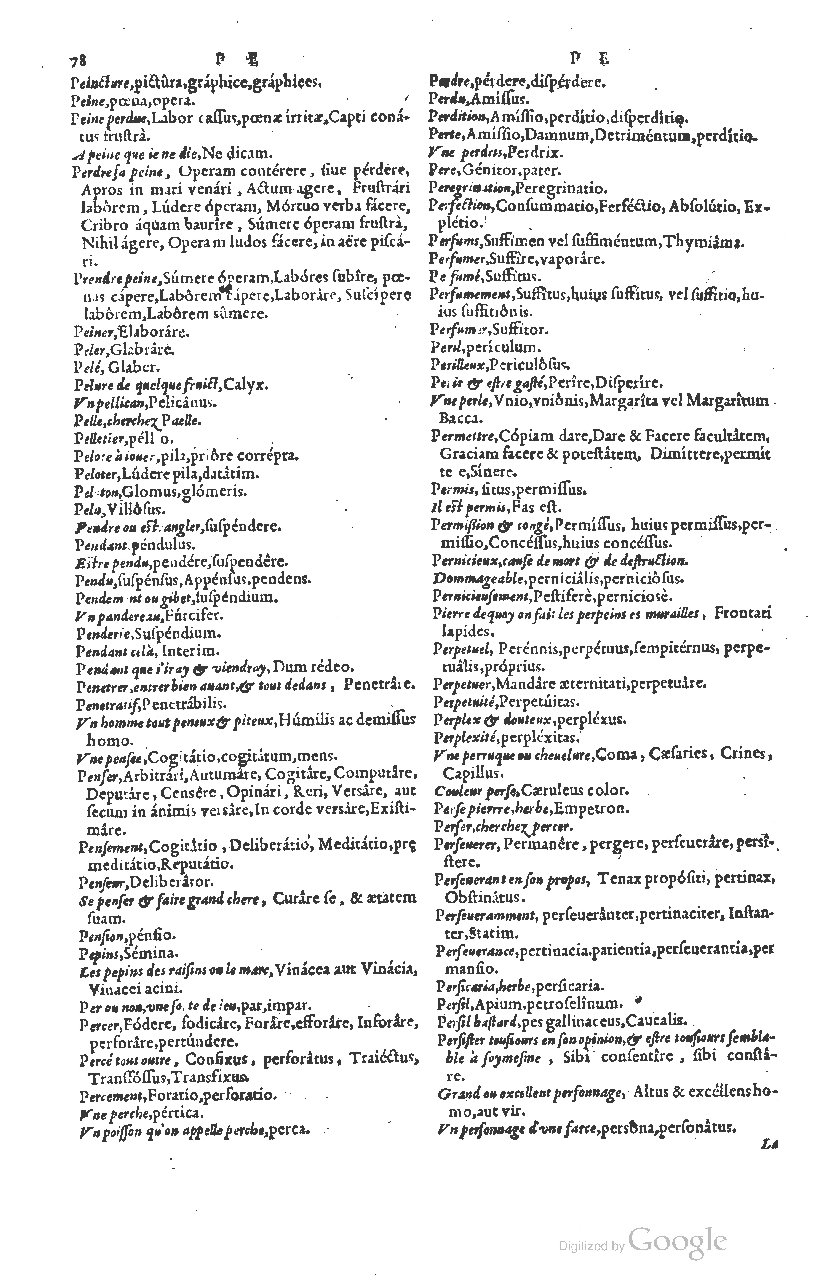 78 P E P E
Peinćture,pictûra,gráphice,gráphices.
Peine,pœna,opera.
Peine perdue,Labor cassus,pœnæ irritæ,Capti coná-
tus frustrà.
A peine que ie ne die,Ne dicam.
Perdre sa peine, Operam contérere, siue pérdere,
Apros in mari venári, Actum agere, Frustrári
labôrem, Lúdere óperam, Mórtuo verba fácere,
Cribro áquam haurire, Súmere óperam frustrà,
Nihil ágere, Operam ludos fácere, in aëre piscá-
ri.
Prendre peine,Súmere óperam,Labóres subîre, pœ-
nas cápere,Labôrem cápere,Laborâre, Suscípere
labôrem,Labôrem sûmere.
Peiner,Elaboráre.
Peler,Glabrâre.
Pelé, Glaber.
Pelure de quelque fruict,Calyx.
Vn pellican,Pelicânus.
Pelle,cherchez Paelle.
Pelletier,péll o.
Pelote à iouer,pila,priôre corrépta.
Peloter,Lúdere pila,datâtim.
Pel ton,Glomus,glómeris.
Pelu,Villôsus.
Pendre ou estrangler,suspéndere.
Pendant,péndulus.
Estre pendu,pendére,suspendêre.
Pendu,suspénsus,Appénsus,pendens.
Pendem nt ou gibet,suspéndium.
Vn pandereau,Fúrcifer.
Penderie,Suspéndium.
Pendant celà, Interim.
Pendant que i'iray & viendray,Dum rédeo.
Penetrer,entrer bien auant,& tout dedans, Penetrâre.
Penetratif,Penetrábilis.
Vn homme tout peneux & piteux,Húmilis ac demissus
homo.
Vne pensee,Cogitátio,cogitátum,mens.
Penser,Arbitrári,Autumâre, Cogitâre,Computâre,
Deputâre, Censêre, Opinári, Reri, Versâre, aut
secum in ánimis versâre,In corde versâre,Existi-
mâre.
Pensement,Cogitâtio, Deliberátio, Meditátio,prę
meditátio,Reputátio.
Penseur,Deliberátor.
Se penser & faire grand chere, Curâre se, & ætatem
suam.
Pension,pénsio.
Pepins,Sémina.
Les pepins des raisins ou le marc,Vinácea aut Vinácia,
Vinacei acini.
Per ou non,vne so.te de ieu,par,impar.
Percer,Fódere, fodicâre, Forâre,efforâre, Inforâre,
perforâre,pertúndere.
Percé tout outre, Confixus, perforâtus, Traiéctus,
Transfóssus,Transfixus.
Percement,Foratio,perforatio.
Vne perche,pértica.
Vn poisson qu'on appelle perche,perca.
Perdre,pérdere,dispérdere.
Perdu,Amissus.
Perdition,Amíssio,perdítio,disperdítio.
Perte,Amíssio,Damnum,Detriméntum,perdítio.
Vne perdris,Perdrix.
Pere,Génitor,pater.
Peregrination,Peregrinatio.
Perfection,Consummatio,Perféctio, Absolútio, Ex-
plétio.
Perfums,Suffimen vel suffiméntum,Thymiáma.
Perfumer,Suffîre,vaporâre.
Pe fumé,Suffitus.
Perfumement,Suffîtus,huius suffitus, vel suffitio,hu-
ius suffitiônis.
Perfumer,Suffitor.
Peril,perículum.
Perilleux,Periculôsus.
Perir & estre gasté,Perîre,Disperîre.
Vne perle,Vnio,vniônis,Margaríta vel Margarîtum.
Bacca.
Permettre,Cópiam dare,Dare & Facere facultâtem,
Graciam facere & potestâtem, Dimíttere,permit
te e,Sínere.
Permis, situs,permissus.
Il est permis,Fas est.
Permission & congé,Permíssus, huius permissus,per-
missio,Concéssus,huius concéssus.
Pernicieux,cause de mort & de destruction.
Dommageable,perniciâlis,perniciôsus.
Pernicieusement,Pestiferè,perniciosè.
Pierre dequoy on fait les perpeins es murailles, Frontati
lapides.
Perpetuel, Perénnis,perpétuus,sempitérnus, perpe-
tuâlis,próprius.
Perpetuer,Mandâre æternitati,perpetuâre.
Perpetuité,Perpetúitas.
Perplex & douteux,perpléxus.
Perplexité,perpléxitas.
Vne perruque ou cheuelure,Coma, Cæsaries, Crines,
Capillus.
Couleur perse,Cæruleus color.
Persepierrre,herbe,Empetron.
Perser,cherchez percer.
Perseuerer, Permanêre, pergere, perseuerâre, persi-
stere.
Perseuerant en son propos, Tenax propósiti, pertinax,
Obstinâtus.
Perseueramment, perseuerânter,pertinaciter, Instan-
ter,Statim.
Perseuerance,pertinacia,patientia,perseuerantia,per
mansio.
Persicaria,herbe,persicaria.
Persil,Apium,petroselînum.
Persil bastard,pes gallinaceus,Caucalis.
Persister tousiours en son opinion,& estre tousiours sembla-
ble à soymesme, Sibi consentîre, sibi constâ-
re.
Grand ou excellent personnage, Altus & excéllens ho-
mo,aut vir.
Vn personnage d'vne farce,persôna,personâtus.
La
Digitized by Google